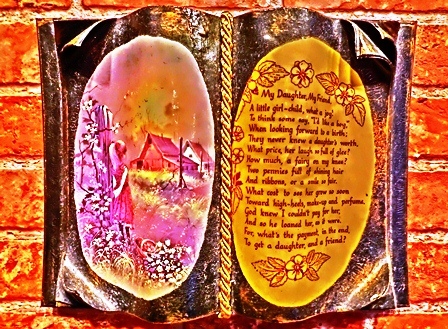 My Daughter, My Friend
A little girl-child, what a joy!
To think some say, "I'd like a boy"
When looking forward to a birth;
They never knew a daughter's worth.
What price, her laugh so full of glee?
How much, a fairy on my knee?
Two pennies full of shining hair
And ribbons, or a smile so fair.
What cost to see her grow so soon
Toward high-heels, make-up and perfume,
God knew I couldn't pay for her;
And so he loaned her, as it were.
For, what's the payment, in the end,
To get a daughter, and a friend?